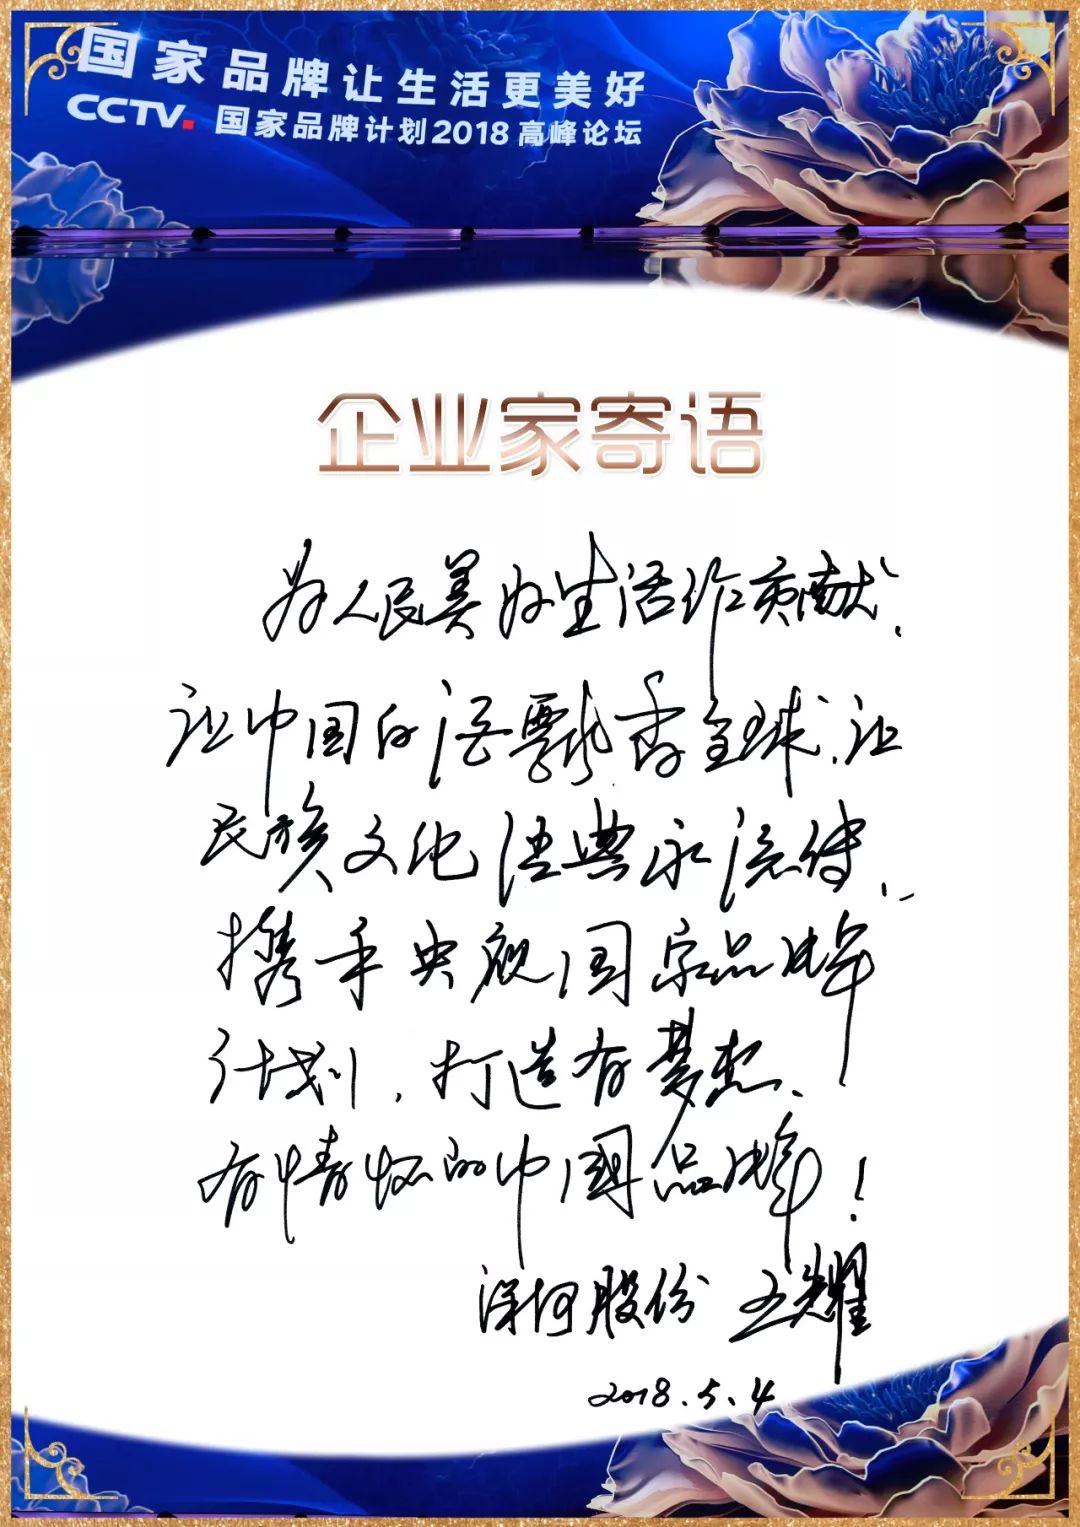 国家品牌让生活更美好
CCTV. 国家品牌计划2018高峰论坛
企业家寄语
为人民美好生活作贡献、
让中国的酒飘香全球、让
民族文化经典永流传、
携手央视国家品牌
计划，打造有梦想、
有情怀的中国品牌！
洋河股份 王耀
2018.5.4